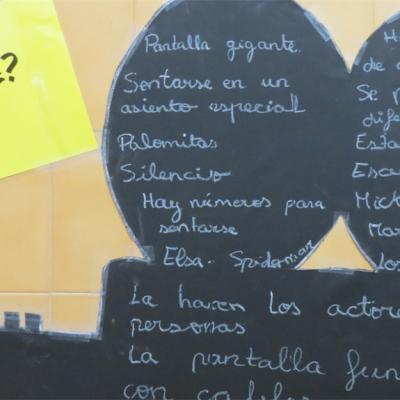 ?
Pantalla gigante..
Sentarse en un
asiento especial
Palomitas
Silencio
Hay números para
sentarse
Elsa. Spiderman
H
de
Se
dife
Esta
Esca
Mick
Mar
los
La hacen los actore
personas
La pantalla fun
con